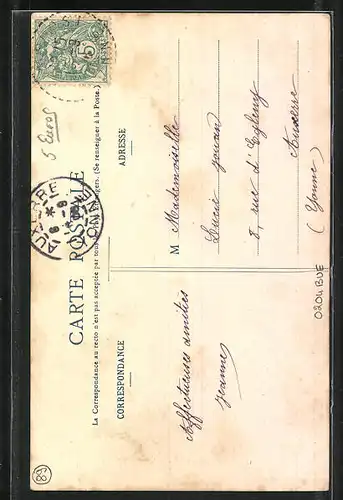 CARTE POSTALE
La Correspondance au recto n'est pas acceptée par tous pays étrangers. (Se renseigner à la Poste.)
CORRESPONDANCE
ADRESSE
Affectueuses amitiés
Jeanne
M Mademoiselle
Lucie
8, rue d'Egleny
Auxerre
(Yonne)
5 Euros
5
AUXERRE
YONNE
0204BUE
89